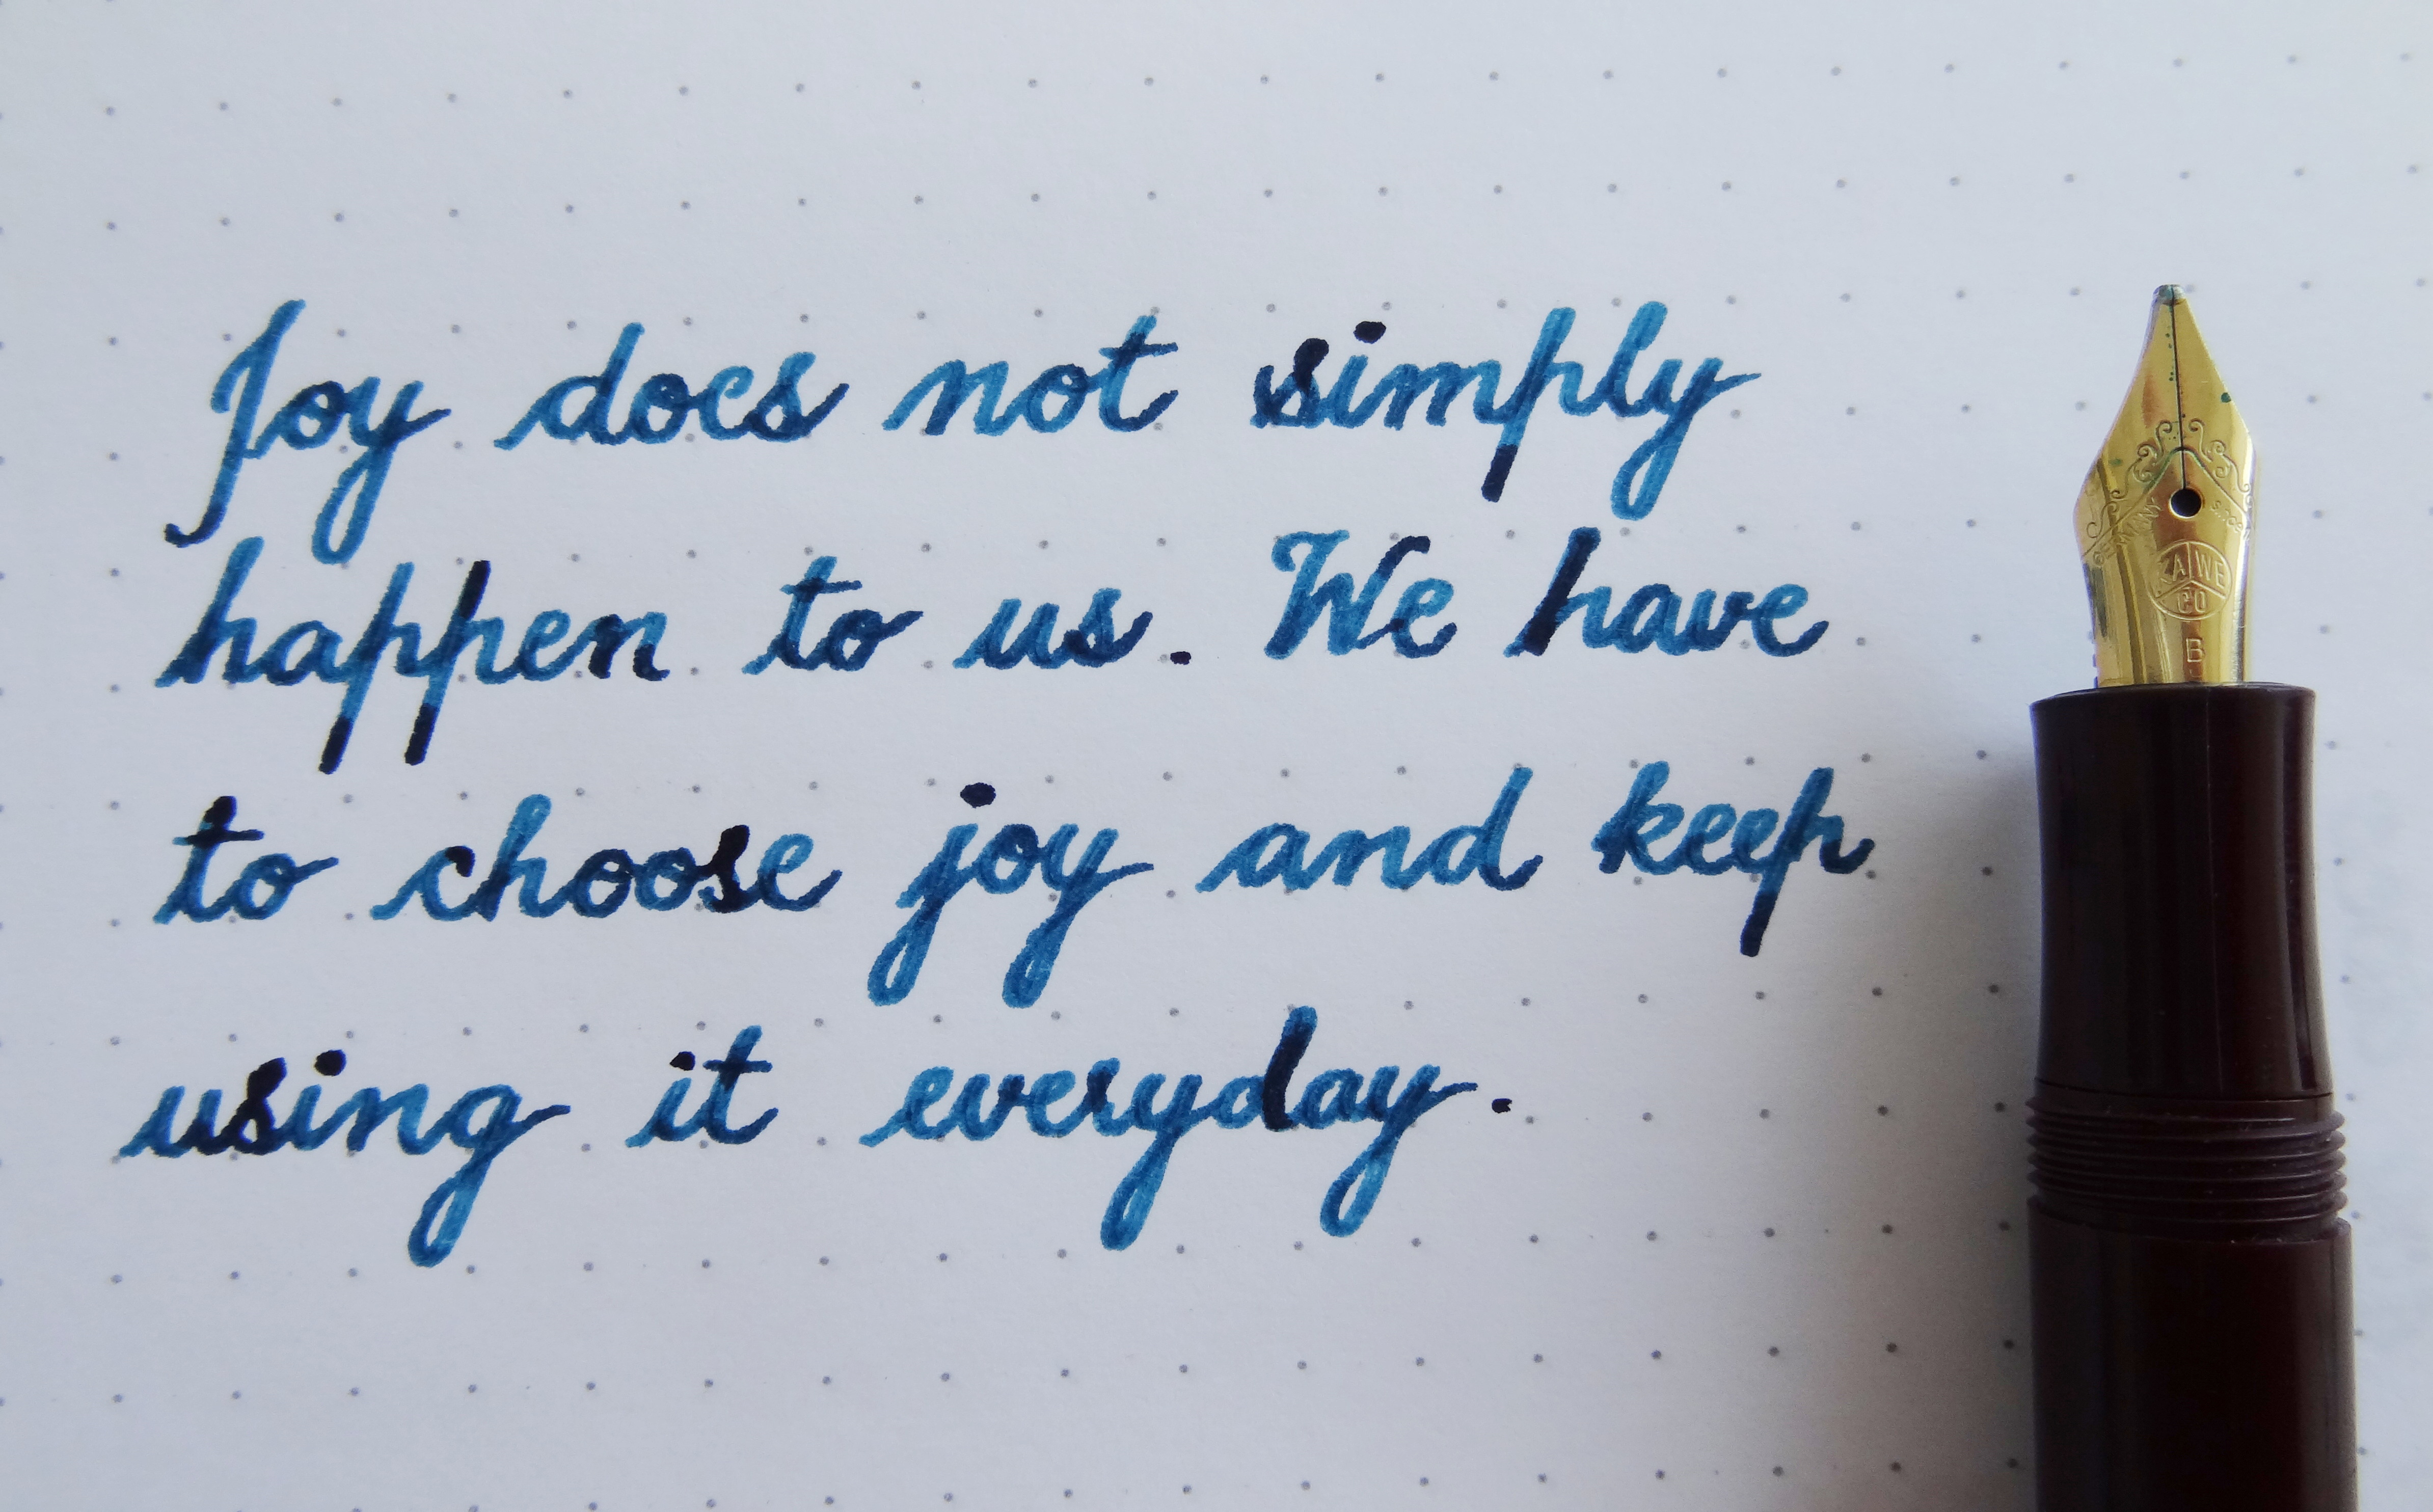 Joy does not simply
happen to us. We have
to choose joy and keep
using it everyday.
KAWE
CO
B